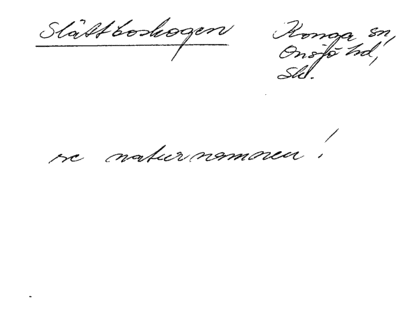 Slättboskogen
Konga sn,
Onsjö hd,
Sk.
se naturnamnen!